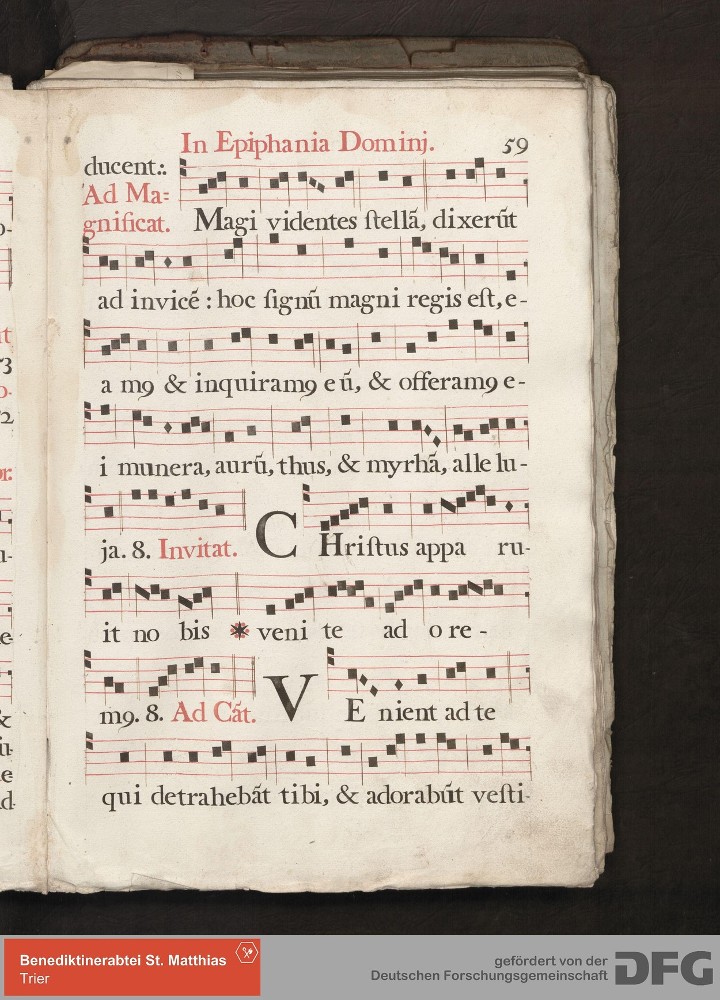 In Epiphania Dominj. 59
ducent:.
Ad Ma=
gnificat. Magi videntes ſtellã, dixerũt
ad invicẽ : hoc ſignũ magni regis eſt, e-
a m9 & inquiram9 eũ, & offeram9 e-
i munera, aurũ, thus, & myrhã, alle lu-
ja. 8. Invitat. CHriſtus appa ru-
it no bis * veni te ad o re -
m9. 8. Ad Cãt. VE nient ad te
qui detrahebãt tibi, & adorabũt veſti-
Benediktinerabtei St. Matthias
Trier
gefördert von der
Deutschen Forschungsgemeinschaft DFG